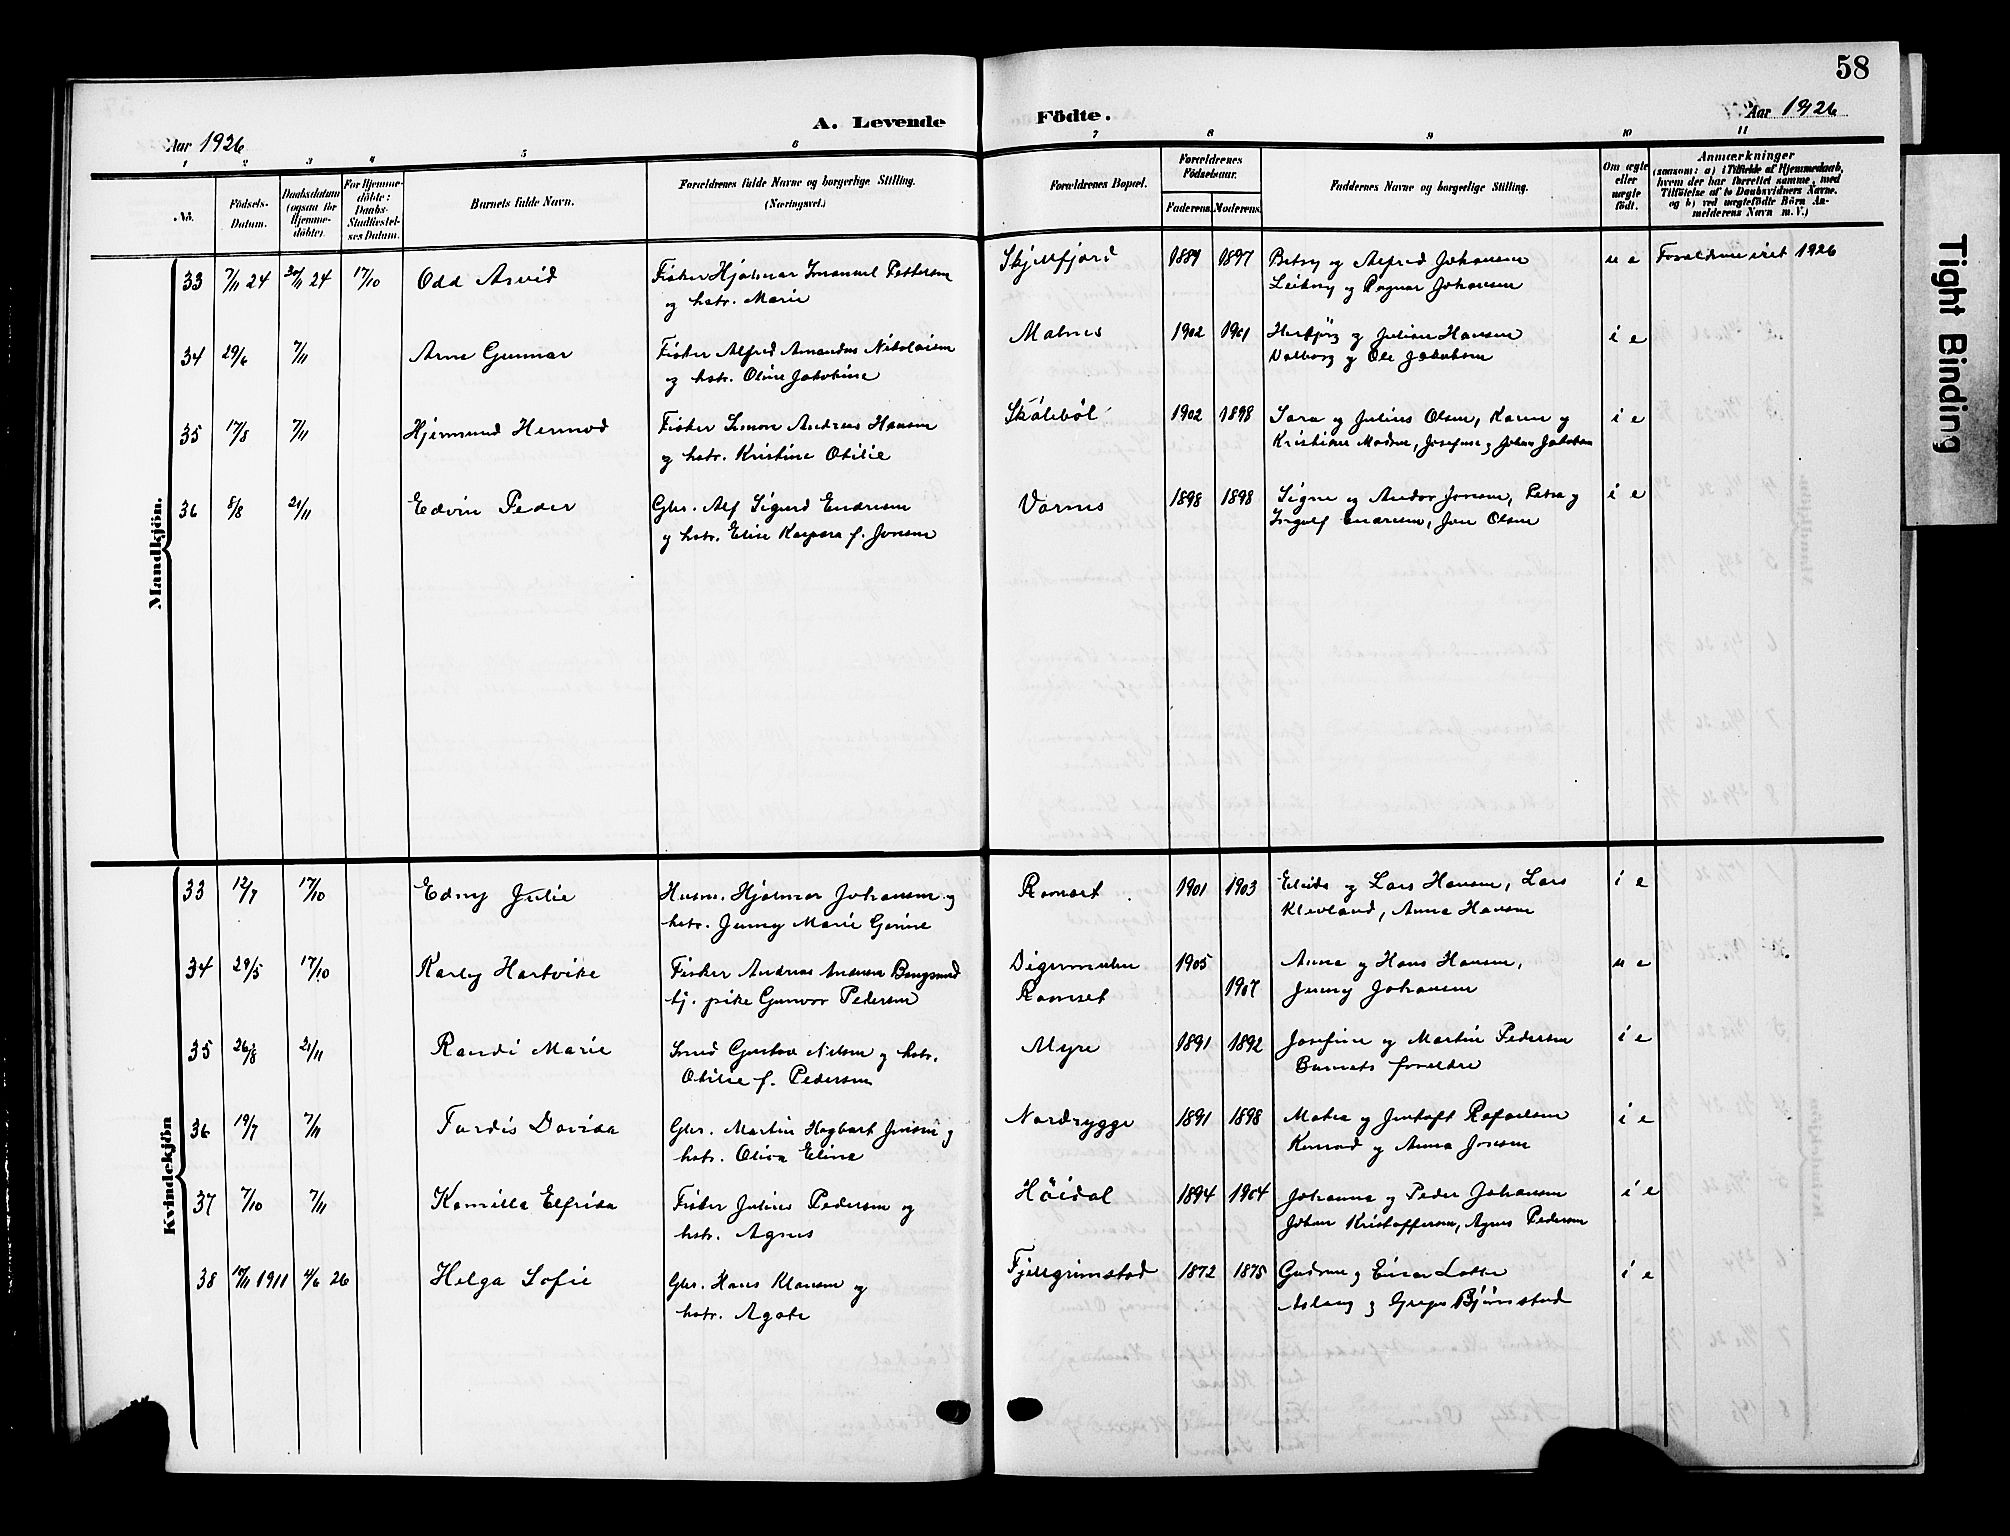 58
A. Levende Födte.
Aar 1926
Aar 1926
1 2 3 4 5 6 7 8 9 10 11
No.
Födsels-Datum.
Daabsdatum (ogsaa for Hjemme-döbte).
For Hjemme-döbte: Daabs-Stadfæstel-ses Datum.
Barnets fulde Navn.
Forældrenes fulde Navne og borgerlige Stilling. (Næringsvei.)
Forældrenes Bopæl.
Forældrenes Födselsaar.
Faderens. Moderens.
Faddernes Navne og borgerlige Stilling.
Om ægte eller uægte födt.
Anmærkninger
(saasom: a) i Tilfælde af Hjemmedaab, hvem der har forrettet samme, med Tilföielse af to Daabsvidners Navne. og b) ved uægtefödte Börn Anmelderens Navn m. V.)
Mandkjön.
33 7/11 24 30/11 24 17/10 Odd Arvid Fisker Hjalmar Imanuel Pettersen Skjelfjord 1889 1897 Betsy og Alfred Johansen u e Foreldrene viet 1926
og hstr. Marie Leikny og Ragnar Johansen
34 29/6 7/11 Arne Gunnar Fisker Alfred Amandus Nikolaisen Malnes 1902 1901 Herbjörg og Julian Hansen i e
og hstr. Oline Jakobine Valborg og Ole Jakobsen
35 17/8 7/11 Hjermund Hermod Fisker Simon Andreas Hansen Skåleböl 1902 1898 Sara og Julius Olsen, Karen og i e
og hstr. Kristine Otilie Kristian Madsen, Josefine og Johan Jakobsen
36 8/8 21/11 Edvin Peder Gbr. Alf Sigurd Endresen Varnes 1898 1898 Signe og Andor Jensen, Petra og i e
og hstr. Elise Kaspara f. Jonsen Ingolf Endresen, Jon Olsen
Kvindekjön
33 12/7 17/10 Edny Julie Husm. Hjalmar Johansen og Ramset 1901 1903 Elida og Lars Hansen, Lars i e
hstr. Jenny Marie Gerine Klevland, Anna Hansen
34 29/5 17/10 Karly Hartvike Fisker Andreas Andersen Bengsund Digermulen 1905 Anna og Hans Hansen, u e
tj. pike Gunvor Pedersen Ramset 1907 Jenny Johansen
35 26/8 21/11 Randi Marie Smed Gustav Nilsen og hstr. Myre 1891 1892 Josefine og Martin Pedersen i e
Otilie f. Pedersen Barnets foreldre
36 19/7 7/11 Tordis Davida Gbr. Martin Hagbart Jensen og Nordrygge 1891 1898 Matea og Jentoft Rafaelsen i e
hstr. Oliva Elina Konrad og Anna Jonsen
37 7/10 7/11 Kamilla Elfrida Fisker Julius Pedersen og Höidal 1894 1904 Johanna og Peder Johansen i e
hstr. Agnes Johan Kristoffersen, Agnes Pedersen
38 10/11 1911 4/6 26 Helga Sofie Gbr. Hans Klausen og Fjellgrimstad 1872 1875 Gudrun og Einar Lokke i e
hstr. Agate Aslaug og Greger Björnstad
Tight Binding